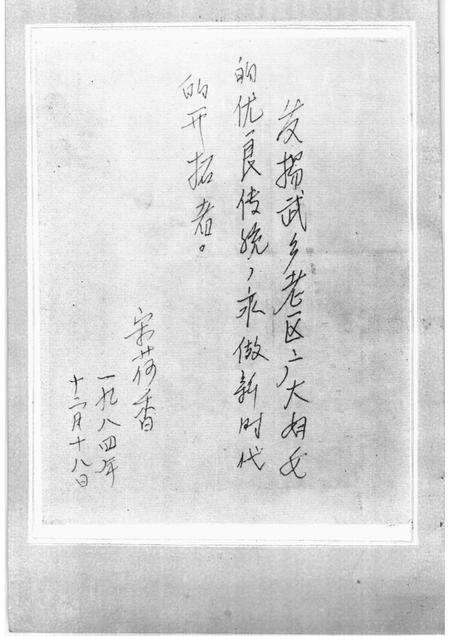 发揚武乡老区广大妇女
的优良传统,做新时代
的开拓者。
宋荷香
一九八四年
十二月十八日